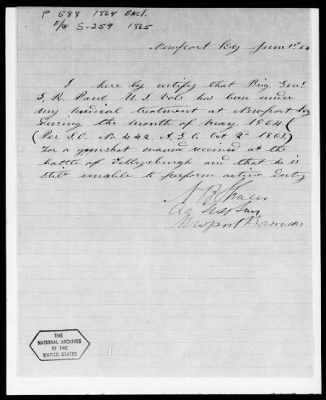 P 588 1864 Encl.
S-259 1865
Newport Ky June 1st 64
I here by certify that Brig. Genl
G. R. Paul U.S. Vols has been under
my medical treatment at Newport Ky
during the month of May 1864 (
Par. S.O. No. 442 A.G.O. Oct 2d 1863)
for a gunshot wound received at the
battle of Gettysburgh and that he is
still unable to perform active duty
Newport Barracks
THE
NATIONAL ARCHIVES
OF THE
UNITED STATES